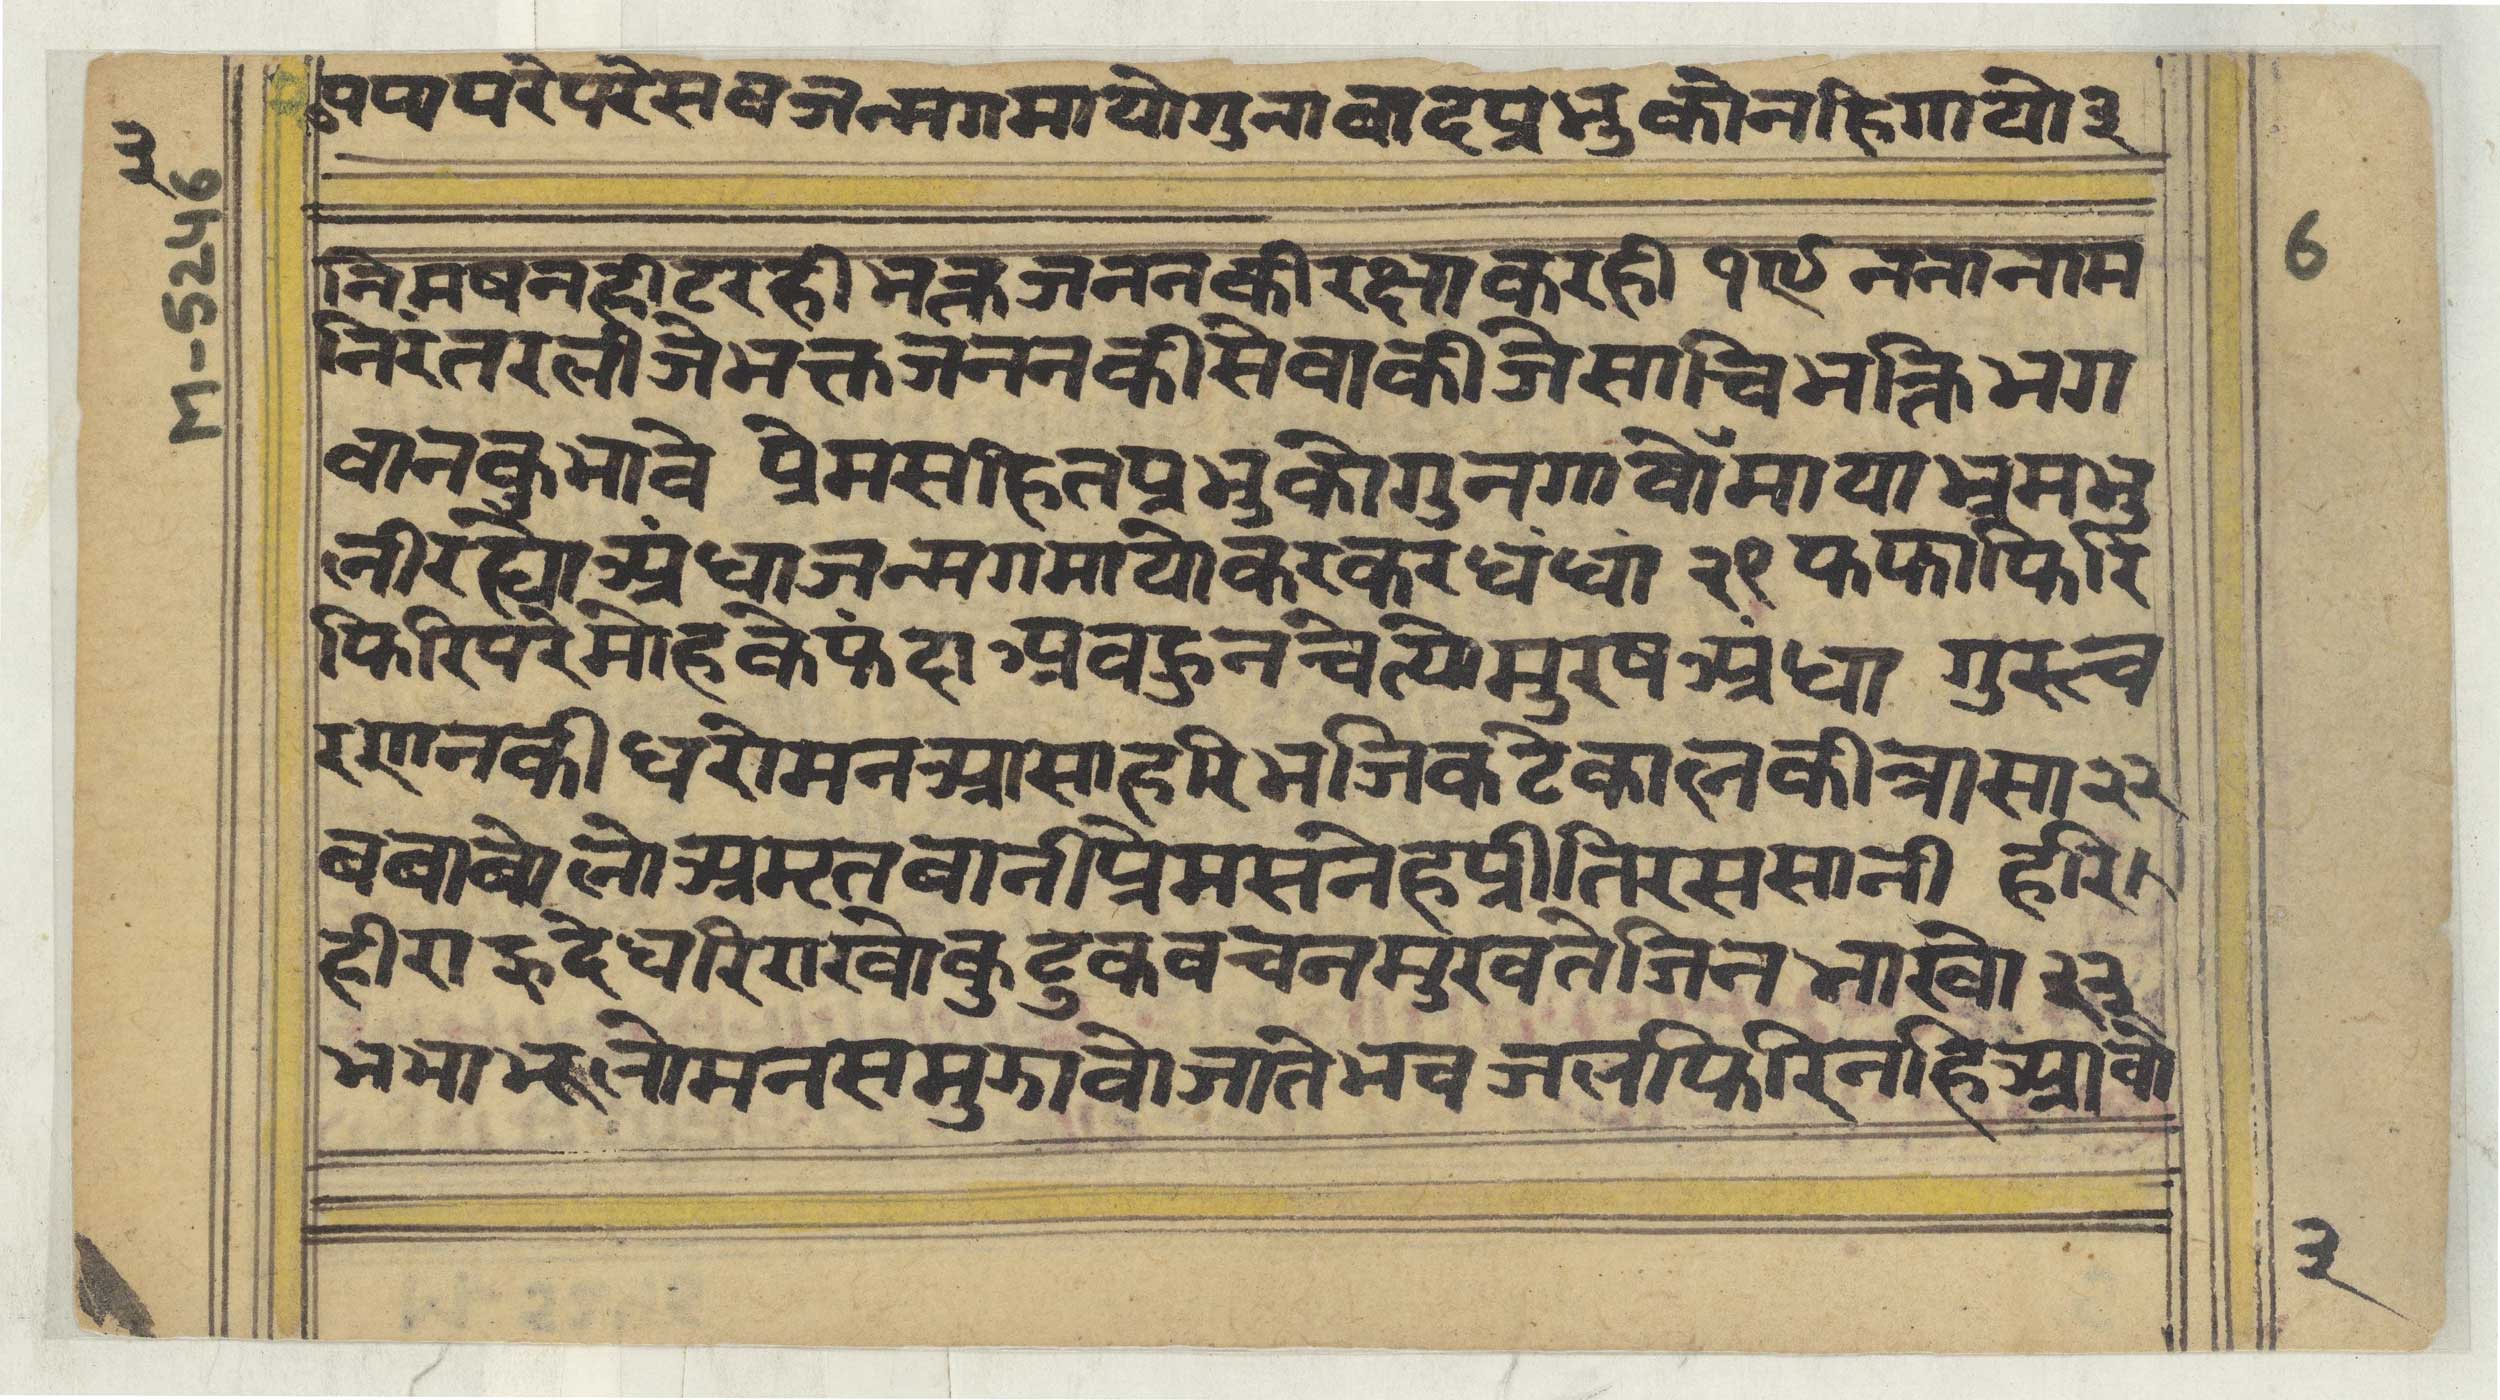 पपा परे परे सब जन्म गमायो गुनावाद प्रभु को नहि गायो ३
३
M-5246
6
निमष नही टरही भक्त जनन की रक्षा करही १९ नना नाम
निरंतर लीजे भक्त जनन की सेवा कीजे साचि भक्ति भग
वान कु भावे प्रेम सहित प्रभु को गुन गावो माया भ्रम भु
ली रह्यो अंधा जन्म गमायो कर कर धंधां २१ फफा फिरि
फिरि परे मोह के फंदा अबहु न चेत्यो मुरष अंधा गुरू च
रणन की धरो मन आसा हरि भजि कटे काल की त्रासा २२
बबा बोलो अमृत बानी प्रेम सनेह प्रीति रस सानी हरि
हीरा ह्रदे धरि राखो कुटुक वचन मुख ते जिन भाखो २३
भभा भूलो मन समुझावो जाते भव जल फिरि नहि आवो
३